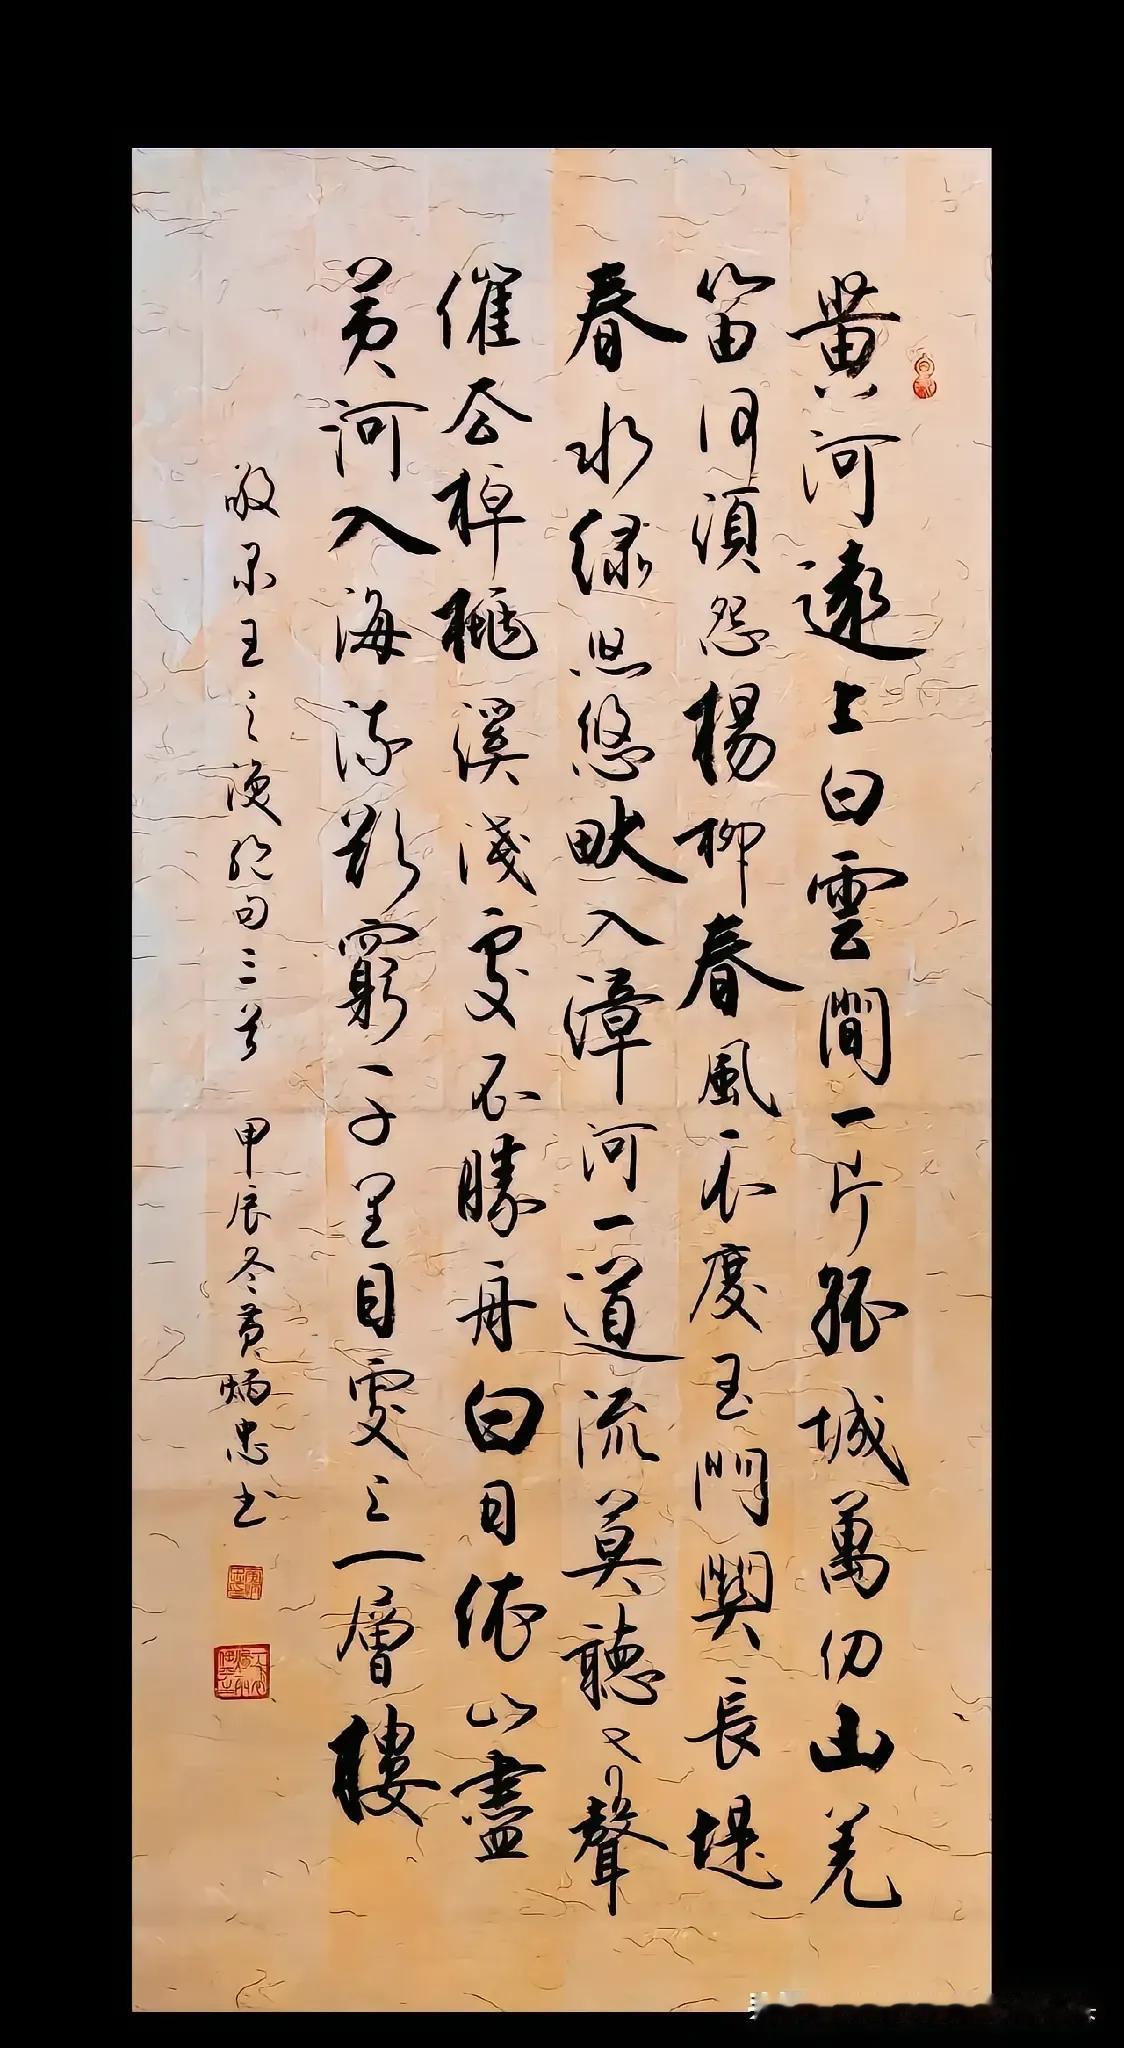 黄河遠上白雲間一片孤城萬仞山羌
笛何須怨楊柳春風不度玉門關長堤
春水绿悠悠畎入漳河一道流莫聽〻聲
催去棹桃溪淺處不勝舟白日依山盡
黄河入海流欲窮千里目更上一層樓
敬录王之渙絕句三首 甲辰冬黄炳忠书